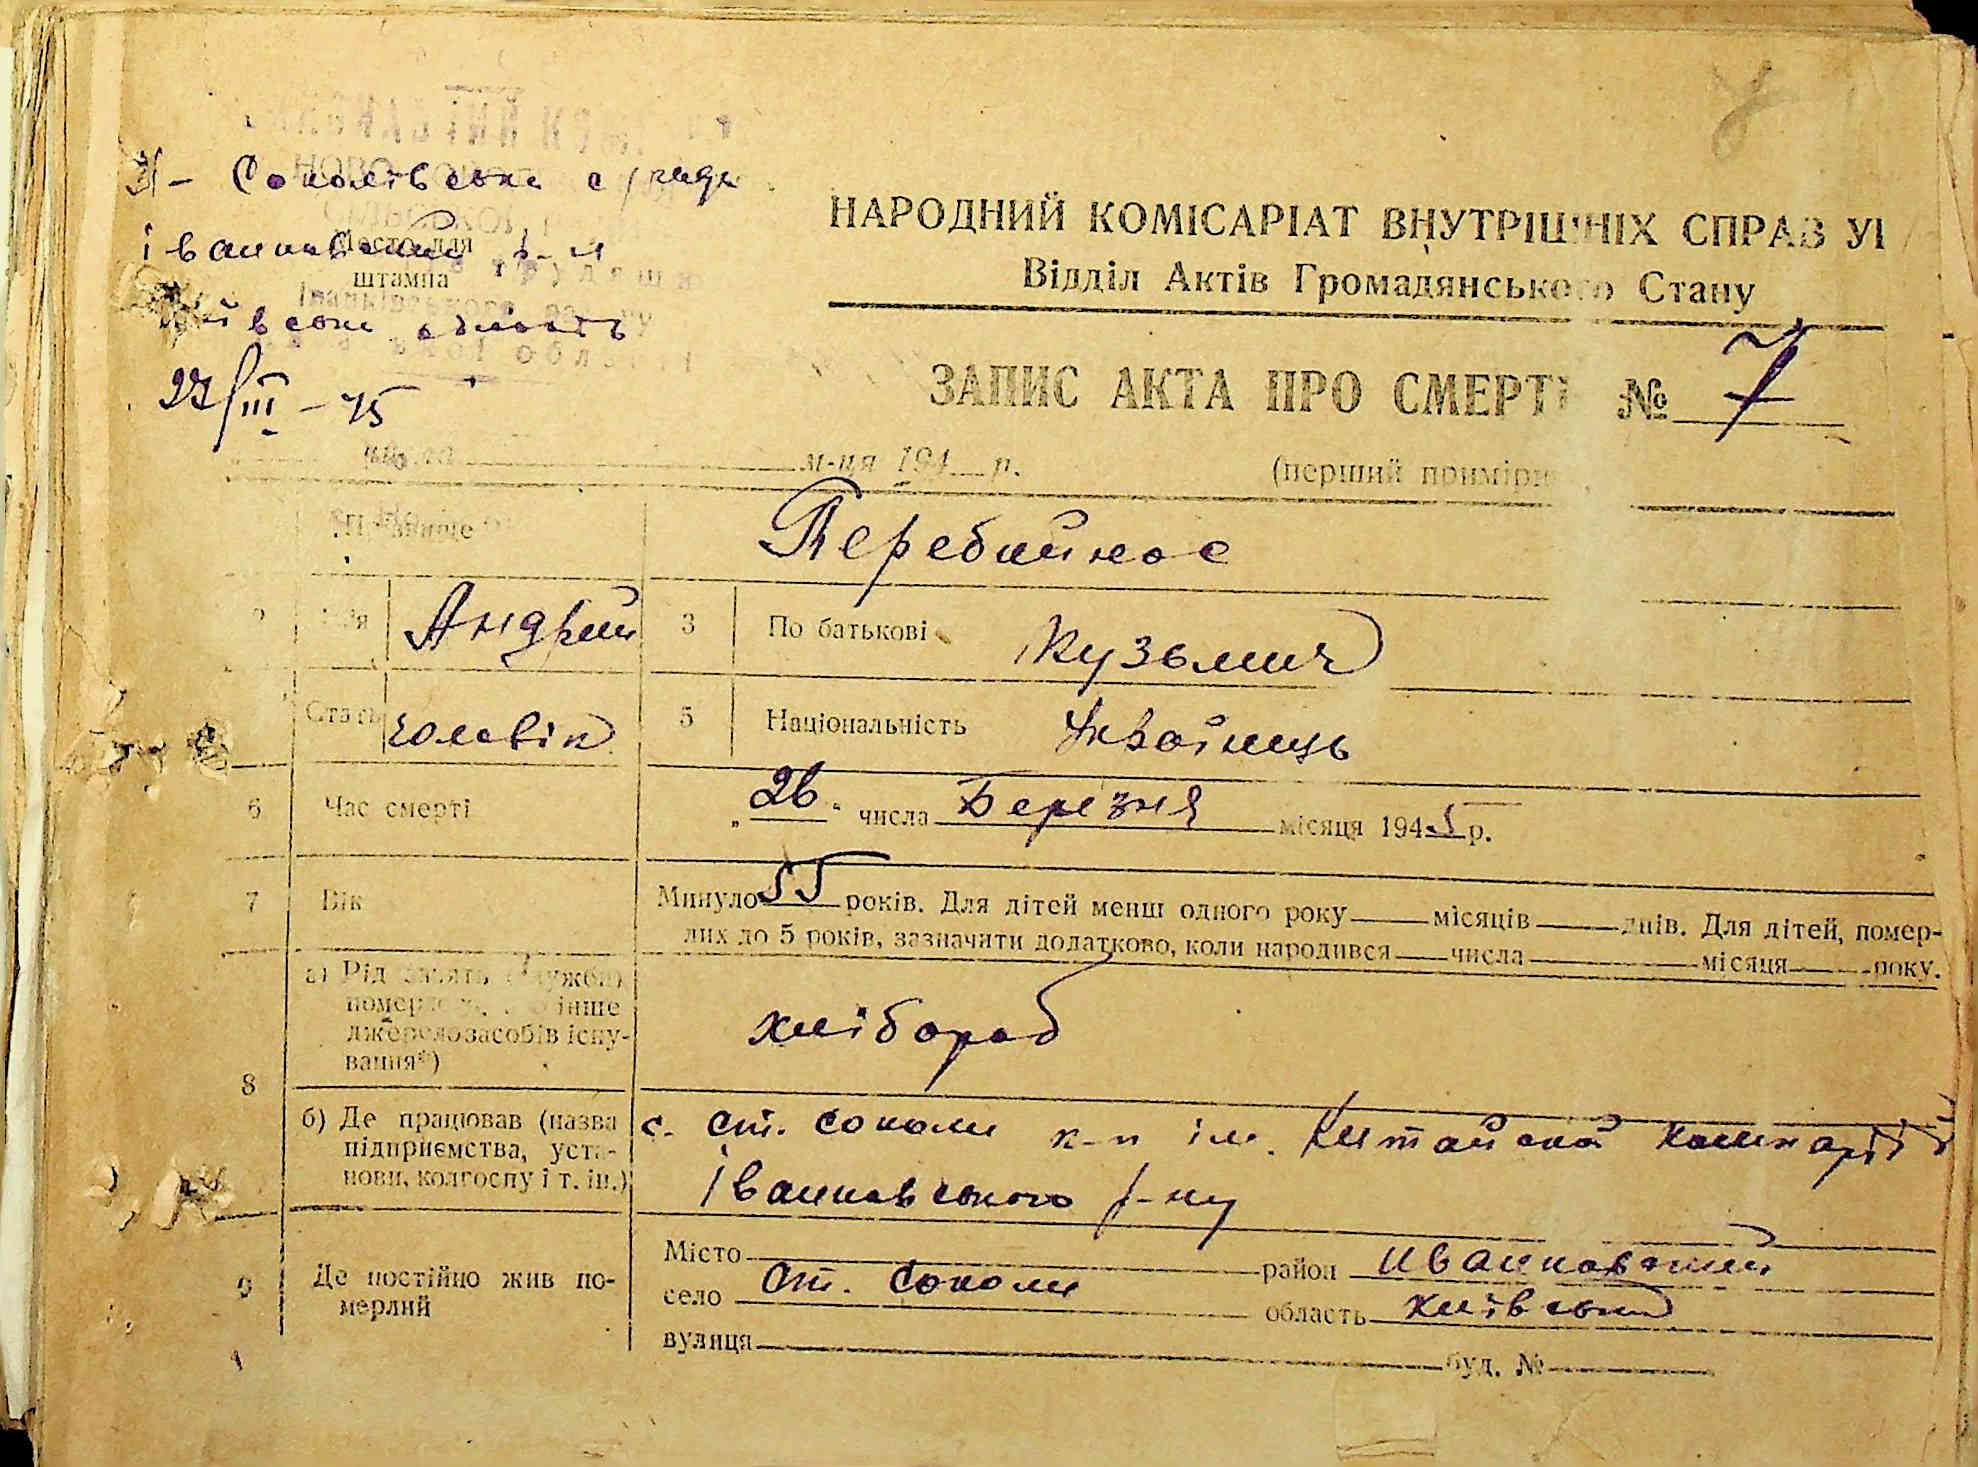 Соколівська с/рада
Іванковський р-н
Місце для
штампа
Київська область
27/III – 45
НАРОДНИЙ КОМІСАРІАТ ВНУТРІШНІХ СПРАВ
Відділ Актів Громадянського Стану
ЗАПИС АКТА ПРО СМЕРТЬ № 7
м-ця 194 р. (перший примірн
Прізвище Перебийнос
2 Ім'я Андрей 3 По батькові Кузьмич
Стать чоловік 5 Національність Українець
6 Час смерті „26" числа Березня місяця 1945 р.
7 Вік Минуло 55 років. Для дітей менш одного року місяців днів. Для дітей, помер-
лих до 5 років, зазначити додатково, коли народився числа місяця року.
8 а) Рід занять (служби)
померлого, або інше
джерело засобів існу-
вання*)
хлібороб
б) Де працював (назва
підприємства, уста-
нови, колгоспу і т. ін.)
с. ст. соколи к-п ім. Китайской Комунарії
Іванковського р-ну
9 Де постійно жив по-
мерлий
Місто район Иванковский
село Ст. Соколи область київська
вулиця буд. №